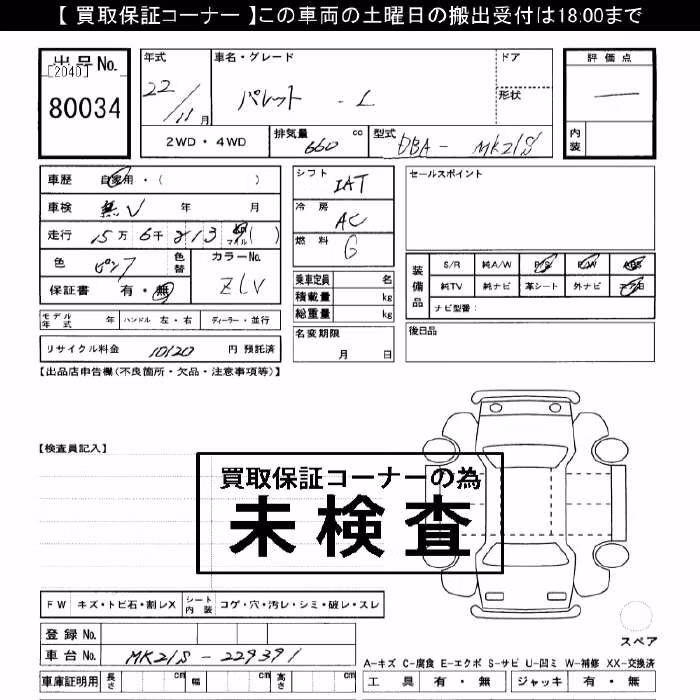 【 買取保証コーナー 】この車両の土曜日の搬出受付は18:00まで
出品No. [2040] 80034
年式 22/11月
車名・グレード パレット - L
ドア
形状
評価点 —
内装
2WD・4WD
排気量 660 cc
型式 DBA - MK21S
車歴 自家用・( )
車検 無 年 月
走行 15万 6千 213 km マイル ( )
色 ピンク 色替
カラーNo. ZLV
保証書 有・無
シフト IAT
冷房 AC
燃料 G
乗車定員 名
積載量 kg
総重量 kg
名変期限 月 日
セールスポイント
装備品 S/R 純A/W P/S P/W ABS
純TV 純ナビ 革シート 外ナビ エアB
ナビ型番:
後日品
モデル年式 年 ハンドル 左・右 ディーラー・並行
リサイクル料金 10120 円 預託済
【出品店申告欄(不良箇所・欠品・注意事項等)】
【検査員記入】
買取保証コーナーの為
未検査
FW キズ・トビ石・割レX シート内装 コゲ・穴・汚レ・シミ・破レ・スレ
登録No.
車台No. MK21S - 229391
車庫証明用 長さ cm 幅 cm 高さ cm
スペア
A-キズ C-腐食 E-エクボ S-サビ U-凹ミ W-補修 XX-交換済
工具 有・無 ジャッキ 有・無